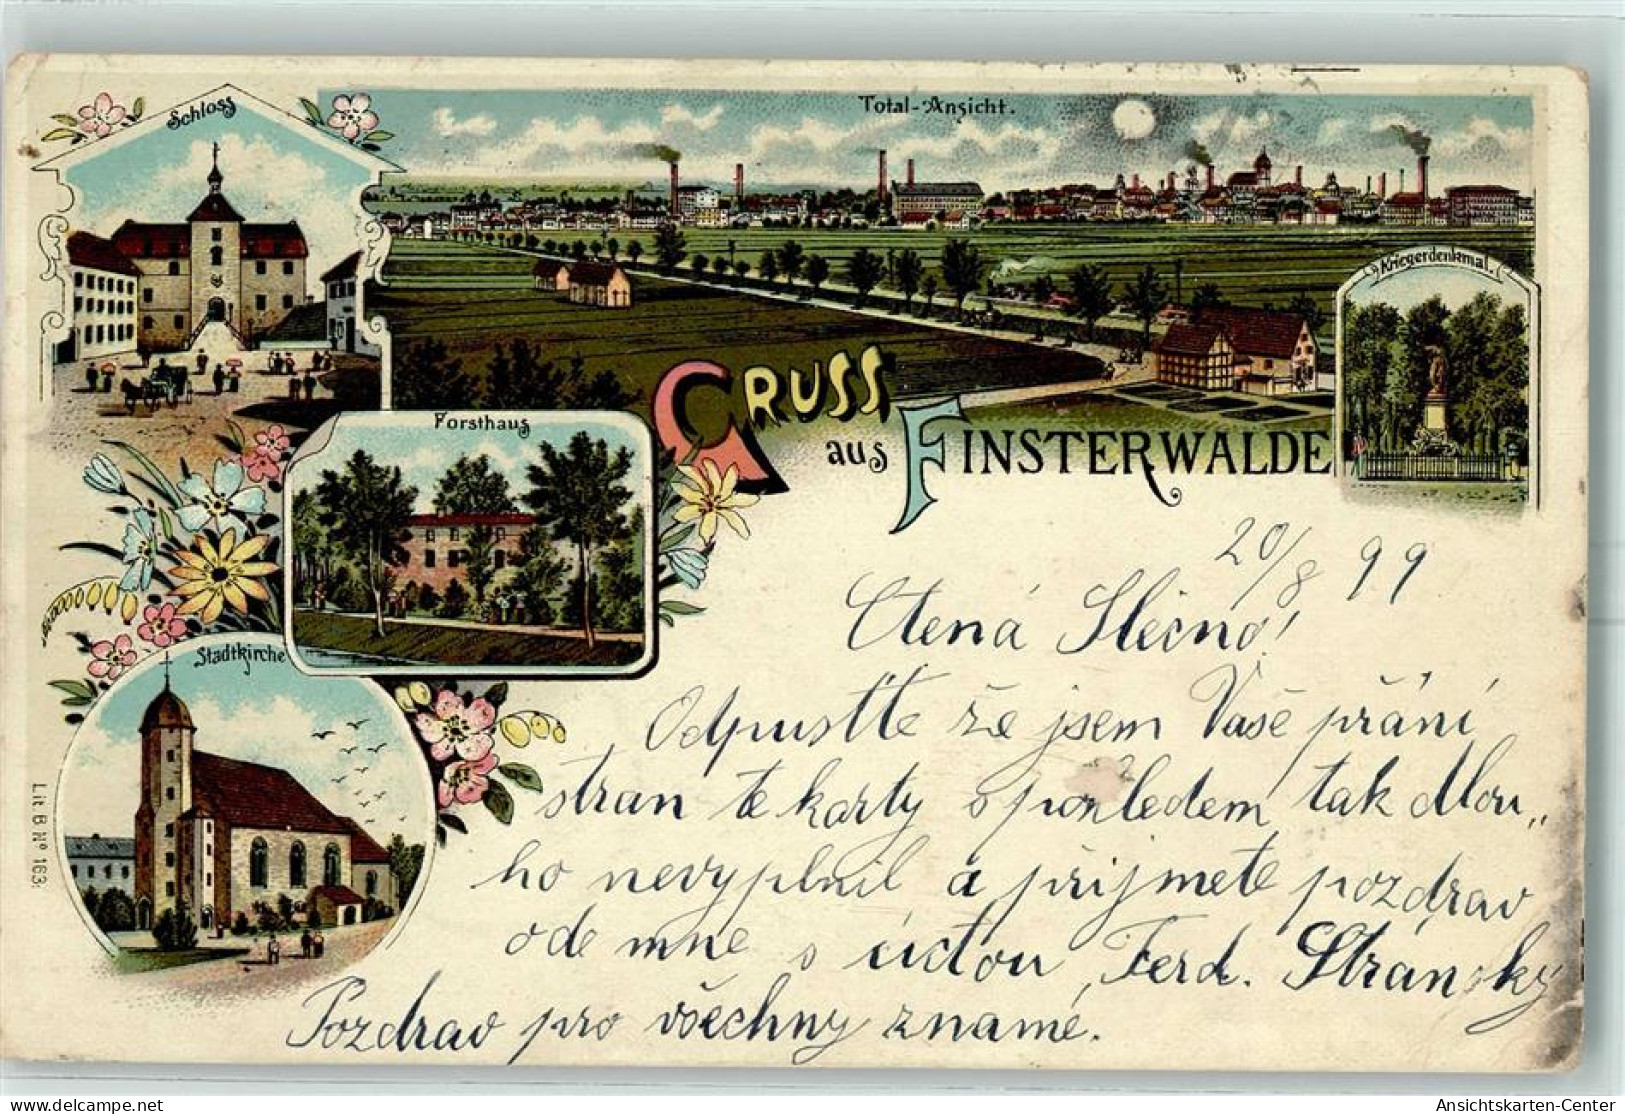 Schloss
Total-Ansicht.
Kriegerdenkmal.
Forsthaus
GRUSS
aus FINSTERWALDE
Stadtkirche
Lit. B No 163.
20/8 99
Ctená Slečno!
Odpusťte že jsem Vaše přání
stran té karty s pohledem tak dlou„
ho nevyplnil a přijmete pozdrav
ode mne s úctou Ferd. Stránský
Pozdrav pro všechny známé.
Ansichtskarten-Center
delcampe.net